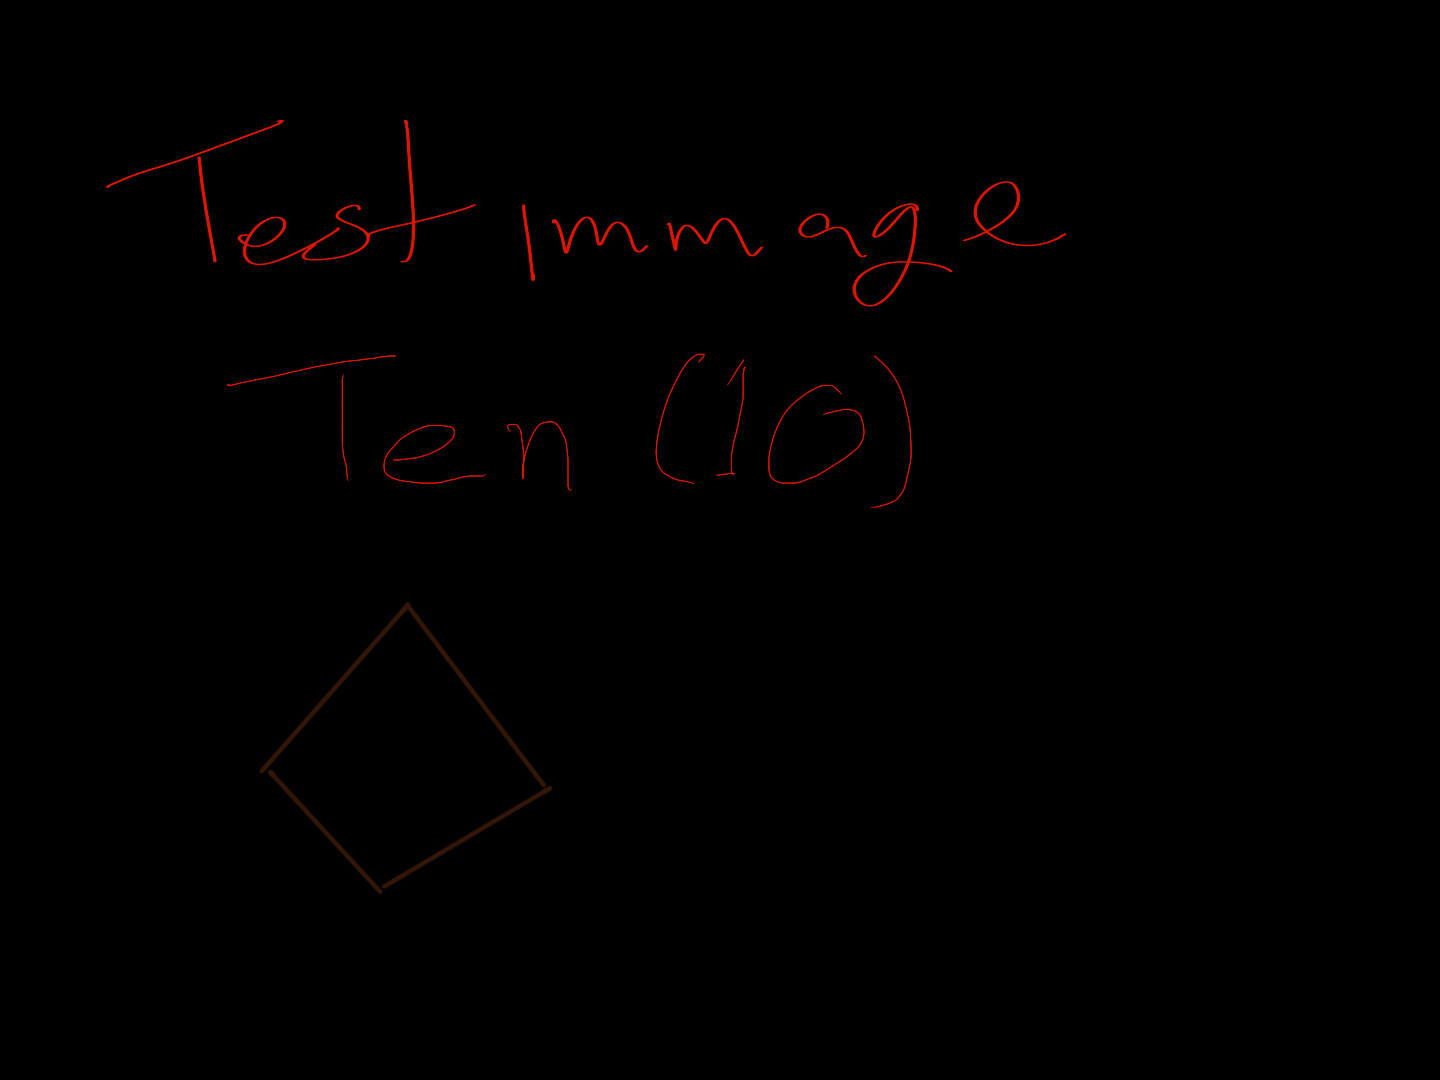 Test immage
Ten (10)